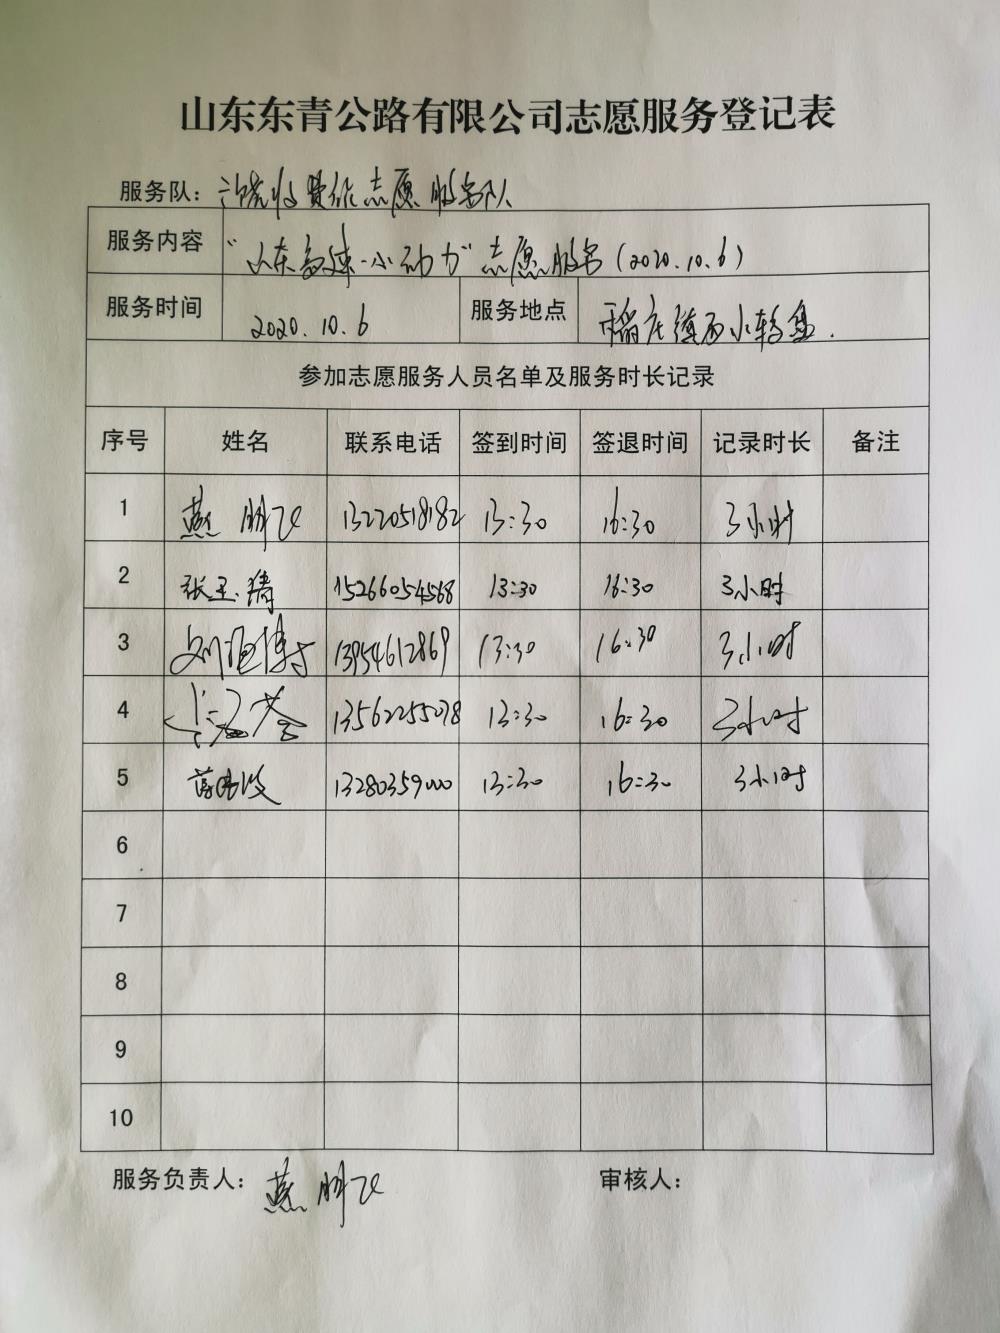 山东东青公路有限公司志愿服务登记表
服务队: 收费站志愿服务队
服务内容 "山东高速·小动力"志愿服务(2020.10.6)
服务时间 2020.10.6 服务地点 稻庄镇西小转盘.
参加志愿服务人员名单及服务时长记录
序号 姓名 联系电话 签到时间 签退时间 记录时长 备注
1 燕鹏飞 13220518182 13:30 16:30 3小时
2 张玉 15266054568 13:30 16:30 3小时
3 刘 博 13954612869 13:30 16:30 3小时
4 13562255078 13:30 16:30 3小时
5 13280359000 13:30 16:30 3小时
6
7
8
9
10
服务负责人: 燕鹏飞 审核人: